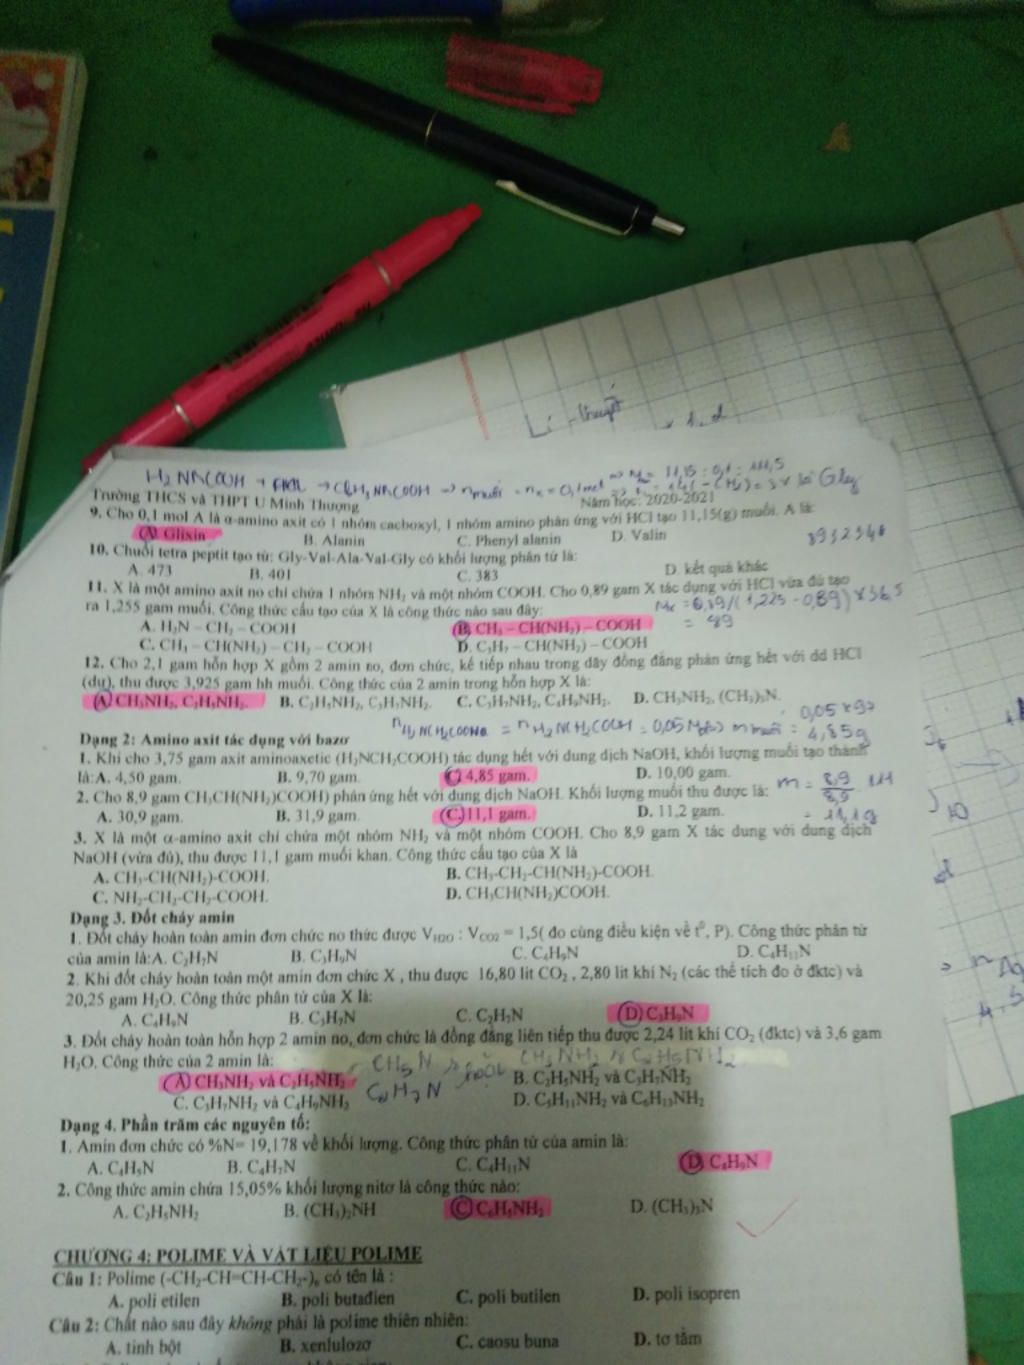 Lí thuyết
H₂NRCOOH + HCl → ClH₃NRCOOH ⇒ n muối = nₓ = 0,1 mol
là Gly
Trường THCS và THPT U Minh Thượng
Năm học: 2020-2021
9. Cho 0,1 mol A là α-amino axit có 1 nhóm cacboxyl, 1 nhóm amino phản ứng với HCl tạo 11,15(g) muối. A là:
A. Glixin B. Alanin C. Phenyl alanin D. Valin
10. Chuỗi tetra peptit tạo từ: Gly-Val-Ala-Val-Gly có khối lượng phân tử là:
A. 473 B. 401 C. 383 D. kết quả khác
11. X là một amino axit no chỉ chứa 1 nhóm NH₂ và một nhóm COOH. Cho 0,89 gam X tác dụng với HCl vừa đủ tạo
ra 1,255 gam muối. Công thức cấu tạo của X là công thức nào sau đây:
Mx = 0,89/(1,225 - 0,89) × 36,5
= 89
A. H₂N – CH₂ – COOH B. CH₃ – CH(NH₂) – COOH
C. CH₃ – CH(NH₂) – CH₂ – COOH D. C₃H₇ – CH(NH₂) – COOH
12. Cho 2,1 gam hỗn hợp X gồm 2 amin no, đơn chức, kế tiếp nhau trong dãy đồng đẳng phản ứng hết với dd HCl
(dư), thu được 3,925 gam hh muối. Công thức của 2 amin trong hỗn hợp X là:
A. CH₃NH₂, C₂H₅NH₂. B. C₂H₅NH₂, C₃H₇NH₂. C. C₃H₇NH₂, C₄H₉NH₂. D. CH₃NH₂, (CH₃)₃N.
n H₂NCH₂COONa = n H₂NCH₂COOH = 0,05 m muối = 0,05×97
= 4,85g
Dạng 2: Amino axit tác dụng với bazơ
1. Khi cho 3,75 gam axit aminoaxetic (H₂NCH₂COOH) tác dụng hết với dung dịch NaOH, khối lượng muối tạo thành
là:A. 4,50 gam. B. 9,70 gam. C. 4,85 gam. D. 10,00 gam.
2. Cho 8,9 gam CH₃CH(NH₂)COOH) phản ứng hết với dung dịch NaOH. Khối lượng muối thu được là:
m = 8,9
= 11,1g
A. 30,9 gam. B. 31,9 gam. C. 11,1 gam. D. 11,2 gam.
3. X là một α-amino axit chỉ chứa một nhóm NH₂ và một nhóm COOH. Cho 8,9 gam X tác dung với dung dịch
NaOH (vừa đủ), thu được 11,1 gam muối khan. Công thức cấu tạo của X là
A. CH₃-CH(NH₂)-COOH. B. CH₃-CH₂-CH(NH₂)-COOH.
C. NH₂-CH₂-CH₂-COOH. D. CH₃CH(NH₂)COOH.
Dạng 3. Đốt cháy amin
1. Đốt cháy hoàn toàn amin đơn chức no thức được V_H2O : V_CO2 = 1,5( đo cùng điều kiện về t⁰, P). Công thức phân tử
của amin là:A. C₂H₇N B. C₃H₉N C. C₄H₉N D. C₄H₁₁N
2. Khi đốt cháy hoàn toàn một amin đơn chức X , thu được 16,80 lit CO₂ , 2,80 lit khí N₂ (các thể tích đo ở đktc) và
20,25 gam H₂O. Công thức phân tử của X là:
A. C₄H₉N B. C₃H₇N C. C₂H₇N D. C₃H₉N
3. Đốt cháy hoàn toàn hỗn hợp 2 amin no, đơn chức là đồng đẳng liên tiếp thu được 2,24 lít khí CO₂ (đktc) và 3,6 gam
H₂O. Công thức của 2 amin là:
CH₅N hoặc CH₃NH₂ C₂H₅NH₂
C₂H₇N
A. CH₃NH₂ và C₂H₅NH₂ B. C₂H₅NH₂ và C₃H₇NH₂
C. C₃H₇NH₂ và C₄H₉NH₂ D. C₅H₁₁NH₂ và C₆H₁₃NH₂
Dạng 4. Phần trăm các nguyên tố:
1. Amin đơn chức có %N= 19,178 về khối lượng. Công thức phân tử của amin là:
A. C₄H₅N B. C₄H₇N C. C₄H₁₁N D. C₄H₉N
2. Công thức amin chứa 15,05% khối lượng nitơ là công thức nào:
A. C₂H₅NH₂ B. (CH₃)₂NH C. C₆H₅NH₂ D. (CH₃)₃N
CHƯƠNG 4: POLIME VÀ VẬT LIỆU POLIME
Câu 1: Polime (-CH₂-CH=CH-CH₂-)ₙ có tên là :
A. poli etilen B. poli butađien C. poli butilen D. poli isopren
Câu 2: Chất nào sau đây không phải là polime thiên nhiên:
A. tinh bột B. xenlulozơ C. caosu buna D. tơ tằm